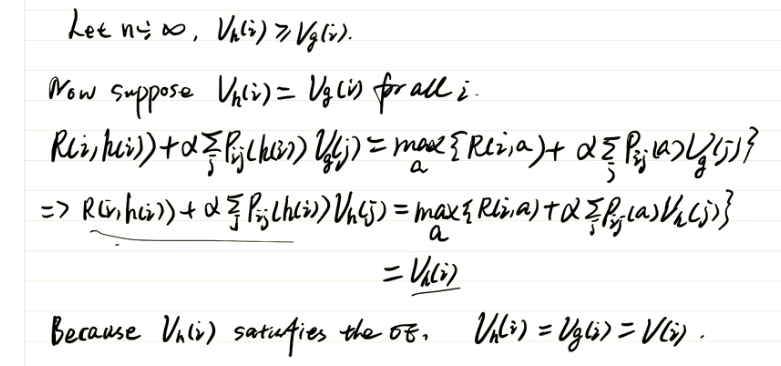 Let n→∞, V_h(i) ≥ V_g(i).
Now suppose V_h(i) = V_g(i) for all i.
R(i,h(i)) + α Σ_j P_ij(h(i)) V_g(j) = max_a {R(i,a) + α Σ_j P_ij(a) V_g(j)}
=> R(i,h(i)) + α Σ_j P_ij(h(i)) V_h(j) = max_a {R(i,a) + α Σ_j P_ij(a) V_h(j)}
= V_h(i)
Because V_h(i) satisfies the OE, V_h(i) = V_g(i) = V(i).